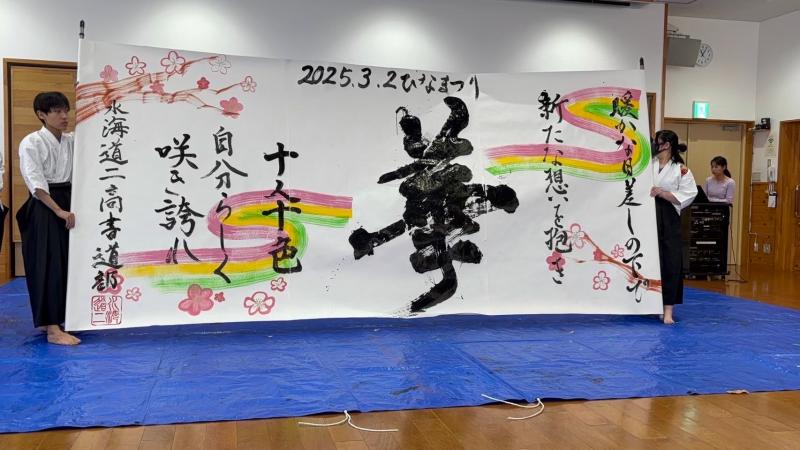 2025.3.2ひなまつり
暖かな日差しの下で
新たな想いを抱き
華
十人十色
自分らしく
咲き誇れ
水海道二高書道部